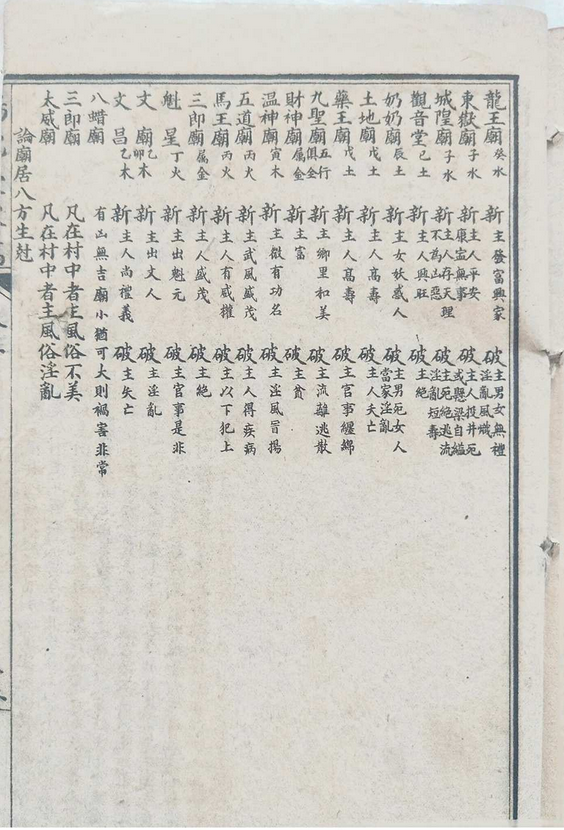 龍王廟癸水 新主發富興家 破主男女無禮淫亂風熾
東嶽廟子水 新主人平安康寧無事 破主人投井死或懸梁自縊
城隍廟子水 新主人存天理不為凶惡 破主死絕逃流淫亂短壽
觀音堂己土 新主人興旺 破主絕
奶奶廟辰土 新主女妖惑人 破主男死女人當家淫亂
土地廟戊土 新主人高壽 破主人夫亡
藥王廟戊土 新主人高壽 破主官事纏綿
九聖廟五行俱全 新主鄉里和美 破主流離逃散
財神廟屬金 新主富 破主貧
温神廟寅木 新主微有功名 破主淫風冒揚
五道廟丙火 新主武風盛茂 破主人得疾病
馬王廟丙火 新主人有威權 破主以下犯上
三郎廟屬金 新主人盛茂 破主絕
魁星丁火 新主出魁元 破主官事是非
文廟乙卯木 新主出文人 破主淫亂
文昌乙木 新主人尚禮義 破主失亡
八蜡廟 有凶無吉廟小猶可大則禍害非常
三郎廟 凡在村中者主風俗不美
太威廟 凡在村中者主風俗淫亂
論廟居八方生尅